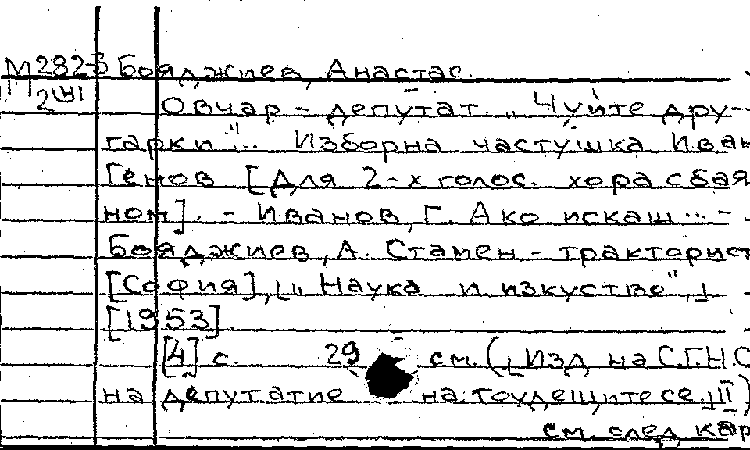 М282-3 Бояджиев, Анастас.
Овчар - депутат „Чуйте дру-
гарки“... Изборна частушка Иван
Генов [Для 2-х голос. хора с бая
ном]. - Иванов, Г. Ако искаш... -
Бояджиев, А. Стамен - тракторист
[София], „Наука и изкуство“,
[1953].
[4] с. 29 см. (Изд на С.Г.Н.С
на депутатие на
см. след. кар